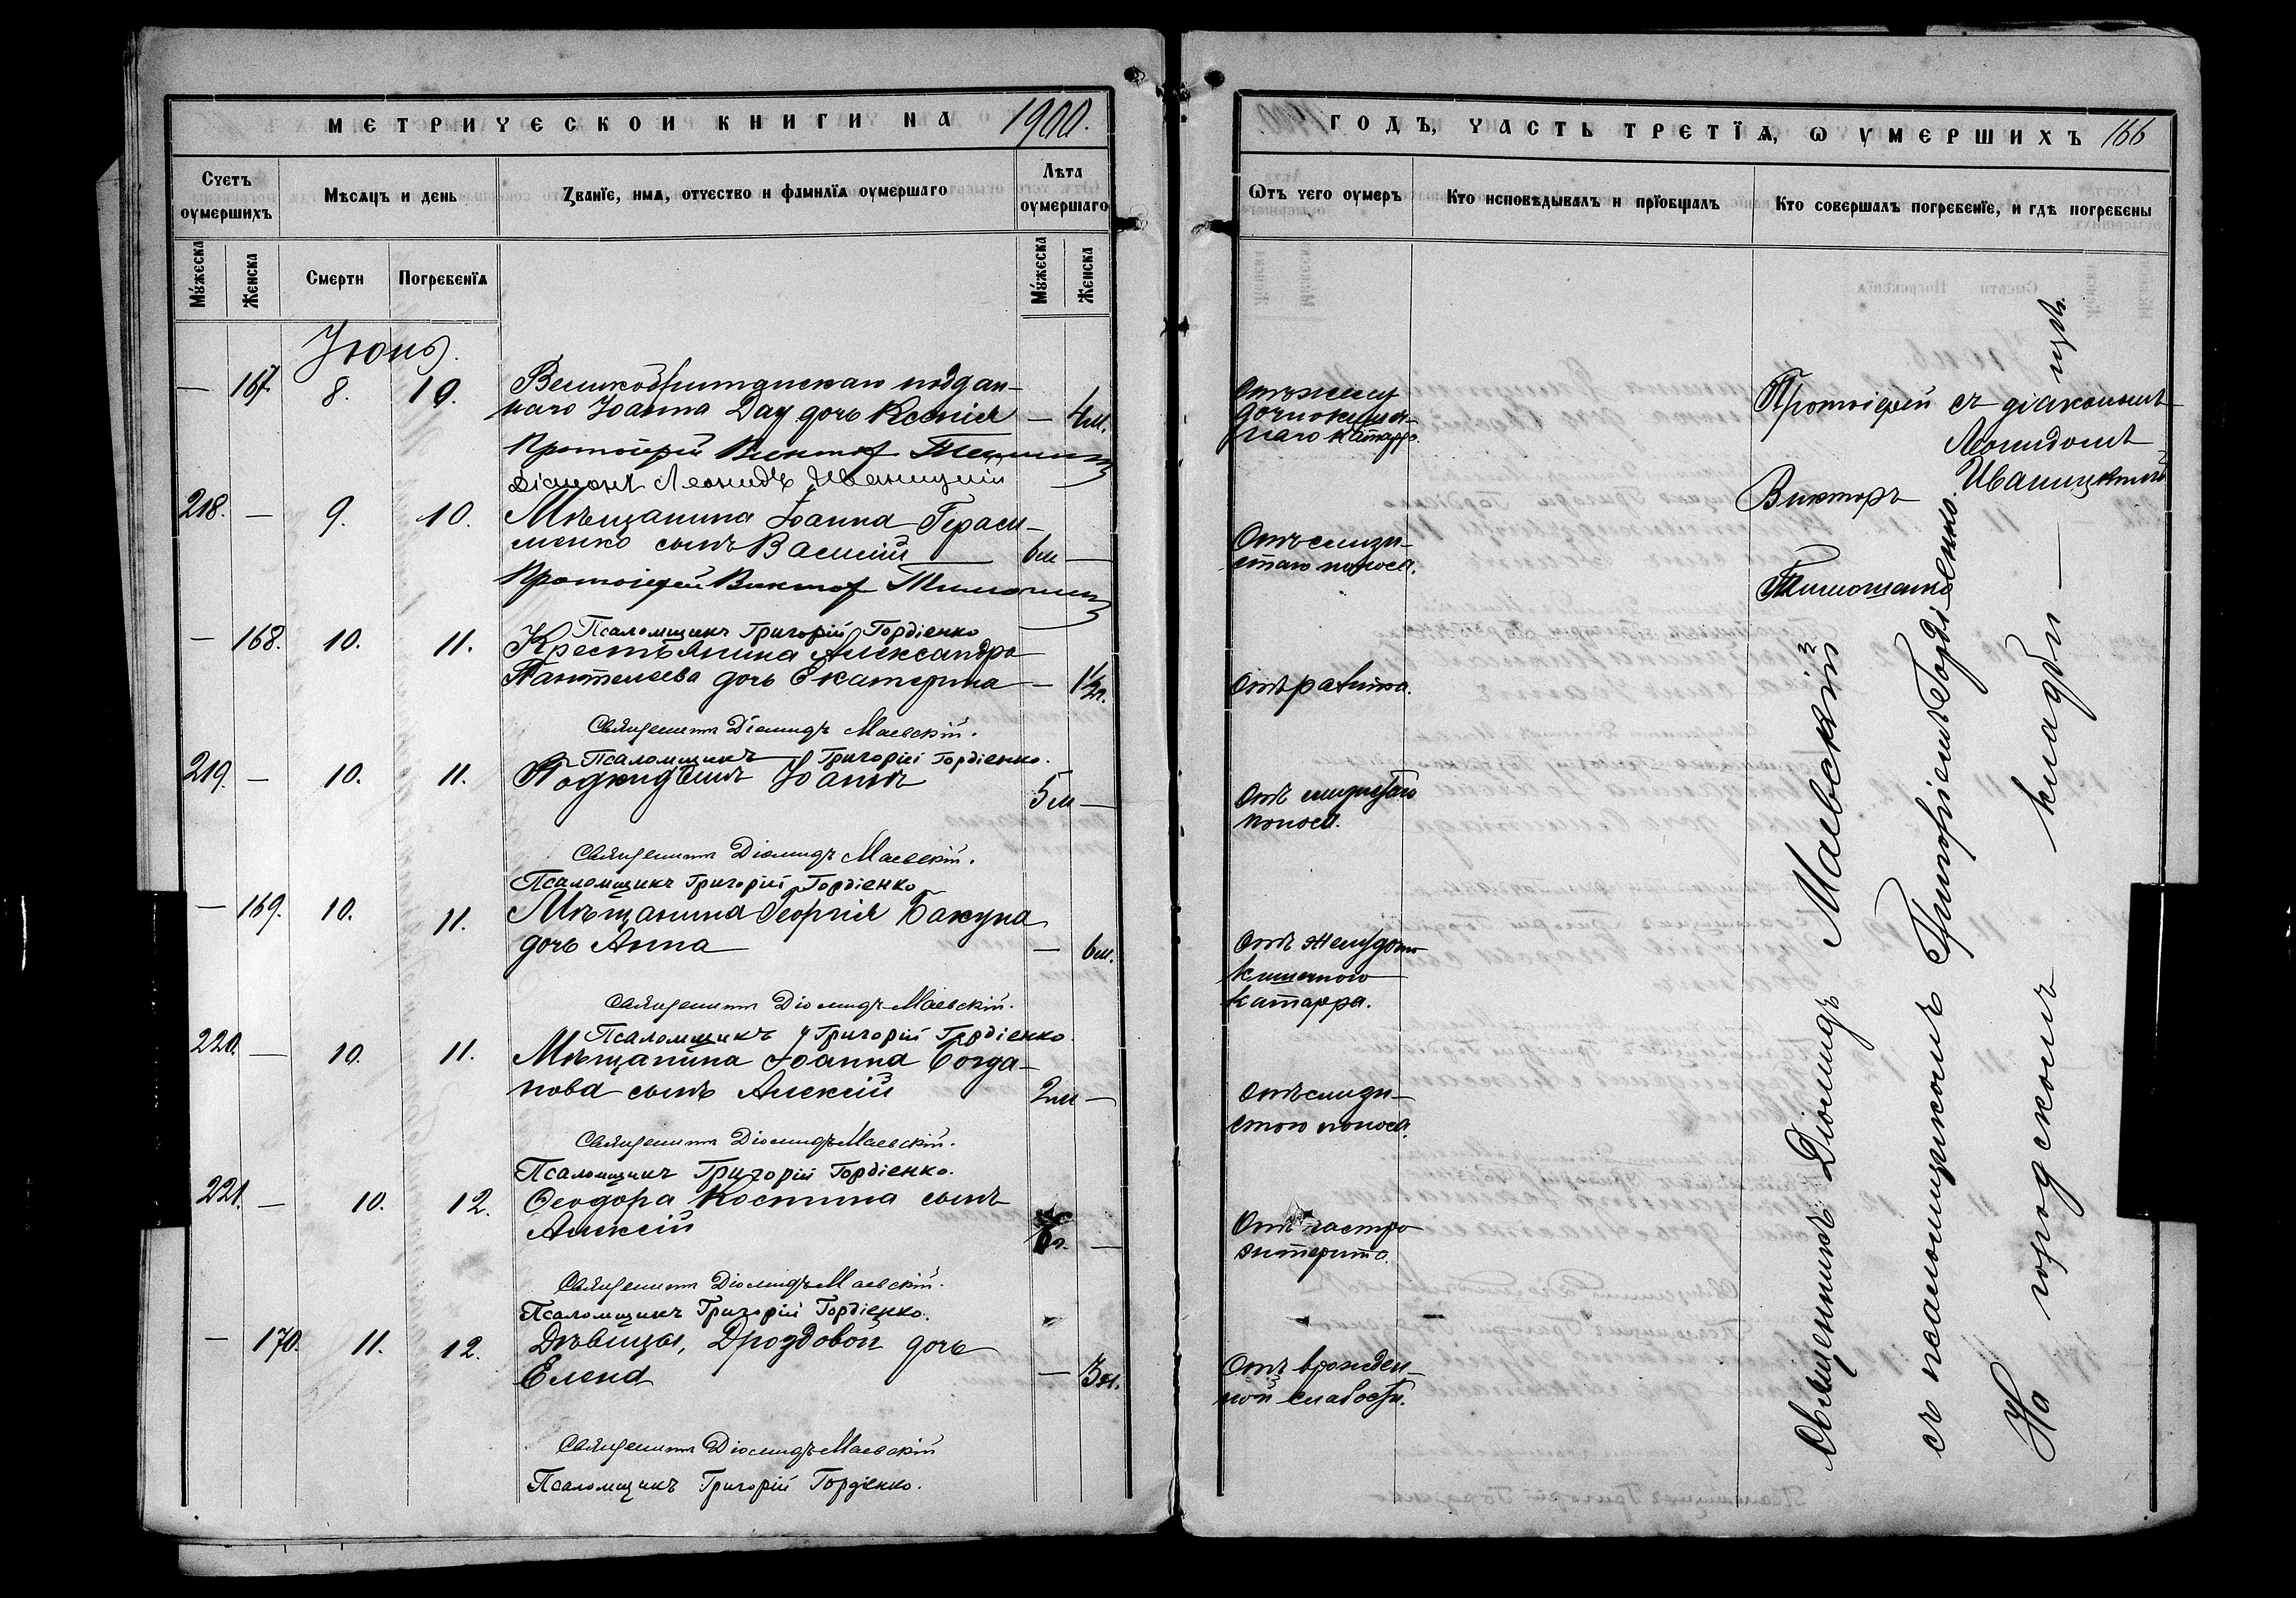 МЕТРИЧЕСКОЙ КНИГИ НА 1900.
Счетъ оумершихъ
Мѣсяцъ и день
Званїе, имя, отчество и фамилїя оумершаго
Лѣта оумершаго
Мꙋжеска
Женска
Смерти
Погребенїя
Мꙋжеска
Женска
Іюнь.
— 167. 8. 10. Великобританскаго поддан-
наго Іоанна Дау дочь Ксенія — 4 м.
Протоіерей Викторъ
Діаконъ Леонидъ Иваницкій
218. — 9. 10. Мѣщанина Іоанна Гераси-
менко сынъ Василій 6 м —
Протоіерей Викторъ
Псаломщикъ Григорій Гордіенко
— 168. 10. 11. Крестьянина Александра
Пантелеева дочь Екатерина — 1½ г.
Священникъ Діомидъ Маевскій.
Псаломщикъ Григорій Гордіенко.
219. — 10. 11. Подкидышъ Іоаннъ
5 м —
Священникъ Діомидъ Маевскій.
Псаломщикъ Григорій Гордіенко
— 169. 10. 11. Мѣщанина Георгія Бакуна
дочь Анна — 6 м.
Священникъ Діомидъ Маевскій.
Псаломщикъ Григорій Гордіенко.
220. — 10. 11. Мѣщанина Іоанна Богда-
нова сынъ Алексій 2 м —
Священникъ Діомидъ Маевскій.
Псаломщикъ Григорій Гордіенко.
221. — 10. 12. Ѳеодора Костина сынъ
Алексій —
Священникъ Діомидъ Маевскій.
Псаломщикъ Григорій Гордіенко.
— 170. 11. 12. Дѣвицы, Дроздовой дочь
Елена —
Священникъ Діомидъ Маевскій
Псаломщикъ Григорій Гордіенко.
ГОДЪ, ЧАСТЬ ТРЕТЇѦ, Ѡ УМЕРШИХЪ 166
Ѿтъ чего оумеръ
Кто исповѣдывалъ и прїобщалъ
Кто совершалъ погребенїе, и гдѣ погребены
Отъ желу
дочнокишеч-
наго катарра.
Отъ слизи-
стаго поноса.
Отъ рахита.
Отъ слизистаго
поноса.
Отъ желудочно
кишечного
катарра.
Отъ слизи-
стого поноса.
Отъ гастро
энтерита.
Отъ врожден-
ной слабости.
Протоіерей съ діакономъ
Леонидомъ
Викторъ Иваницкимъ
Тимошенко
Священникъ Діомидъ Маевскій
съ псаломщикомъ Григоріемъ Гордіенко.
На городскомъ кладби —
щѣ.